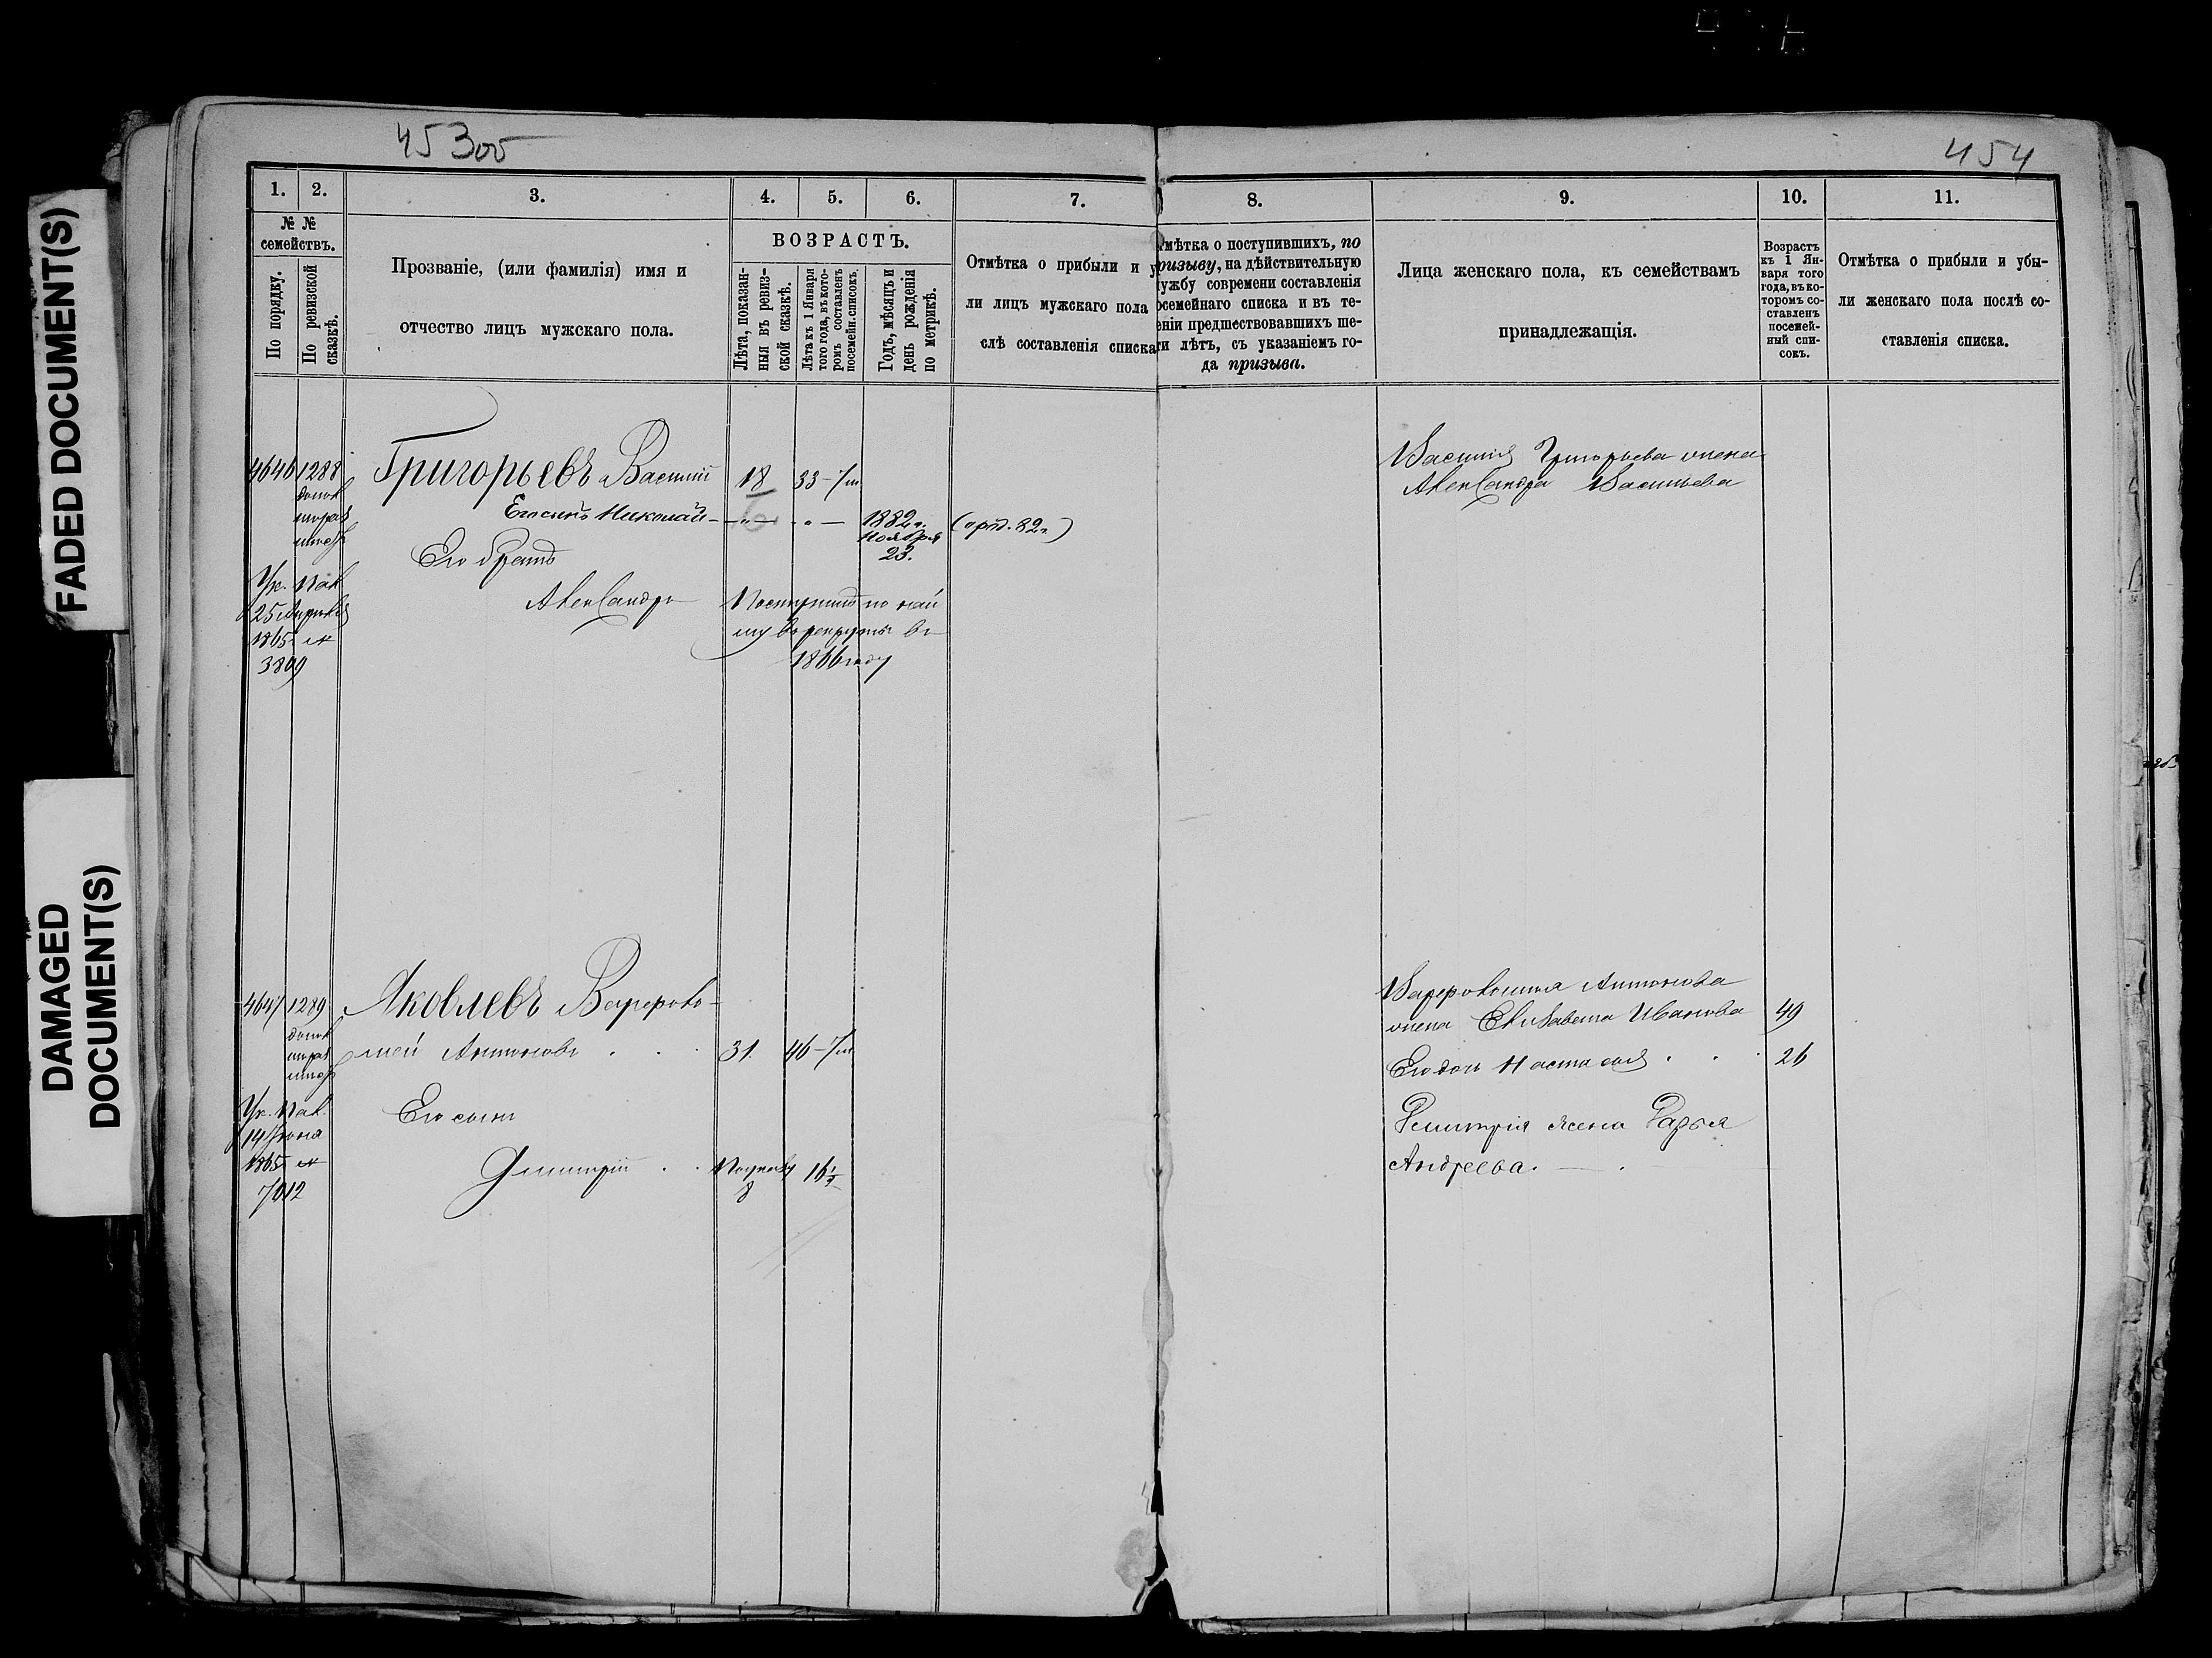 453об
454
FADED DOCUMENT(S)
DAMAGED
DOCUMENT(S)
1. 2. 3. 4. 5. 6. 7. 8. 9. 10. 11.
№ №
семействъ.
По порядку.
По ревизской
сказкѣ.
Прозваніе, (или фамилія) имя и
отчество лицъ мужскаго пола.
ВОЗРАСТЪ.
Лѣта, показан-
ныя въ ревиз-
ской сказкѣ.
Лѣта къ 1 Января
того года, въ кото-
ромъ составленъ
посемейн. списокъ.
Годъ, мѣсяцъ и
день рожденія
по метрикѣ.
Отмѣтка о прибыли и у
ли лицъ мужскаго пола
слѣ составленія списка
мѣтка о поступившихъ, по
ризыву, на дѣйствительную
ужбу современи составленія
осемейнаго списка и въ те-
еніи предшествовавшихъ ше-
ти лѣтъ, съ указаніемъ го-
да призыва.
Лица женскаго пола, къ семействамъ
принадлежащія.
Возрастъ
къ 1 Ян-
варя того
года, въ ко-
торомъ со-
ставленъ
посемей-
ный спи-
сокъ.
Отмѣтка о прибыли и убы-
ли женскаго пола послѣ со-
ставленія списка.
4646 1288 Григорьевъ Василий 18 33-7м
Его сынъ Николай 1882г. (арт. 82г)
Ноября
23.
Его братъ
Александръ Поступилъ по най
му въ рекруты въ
1866 году
Ук. Пал.
25 Апрѣля
1865 №
3809
Василія Григорьева жена
Александра Васильева
4647 1289 Яковлевъ Варфоло-
мей Антоновъ 31. 46-7м
Его сынъ
Дмитрій 8 16½
Ук. Пал.
14 Іюня
1865 №
7012
Варфоломея Антонова
жена Елизавета Иванова 49
Его дочь Настасья 26
Дмитрія жена Дарья
Андреева.